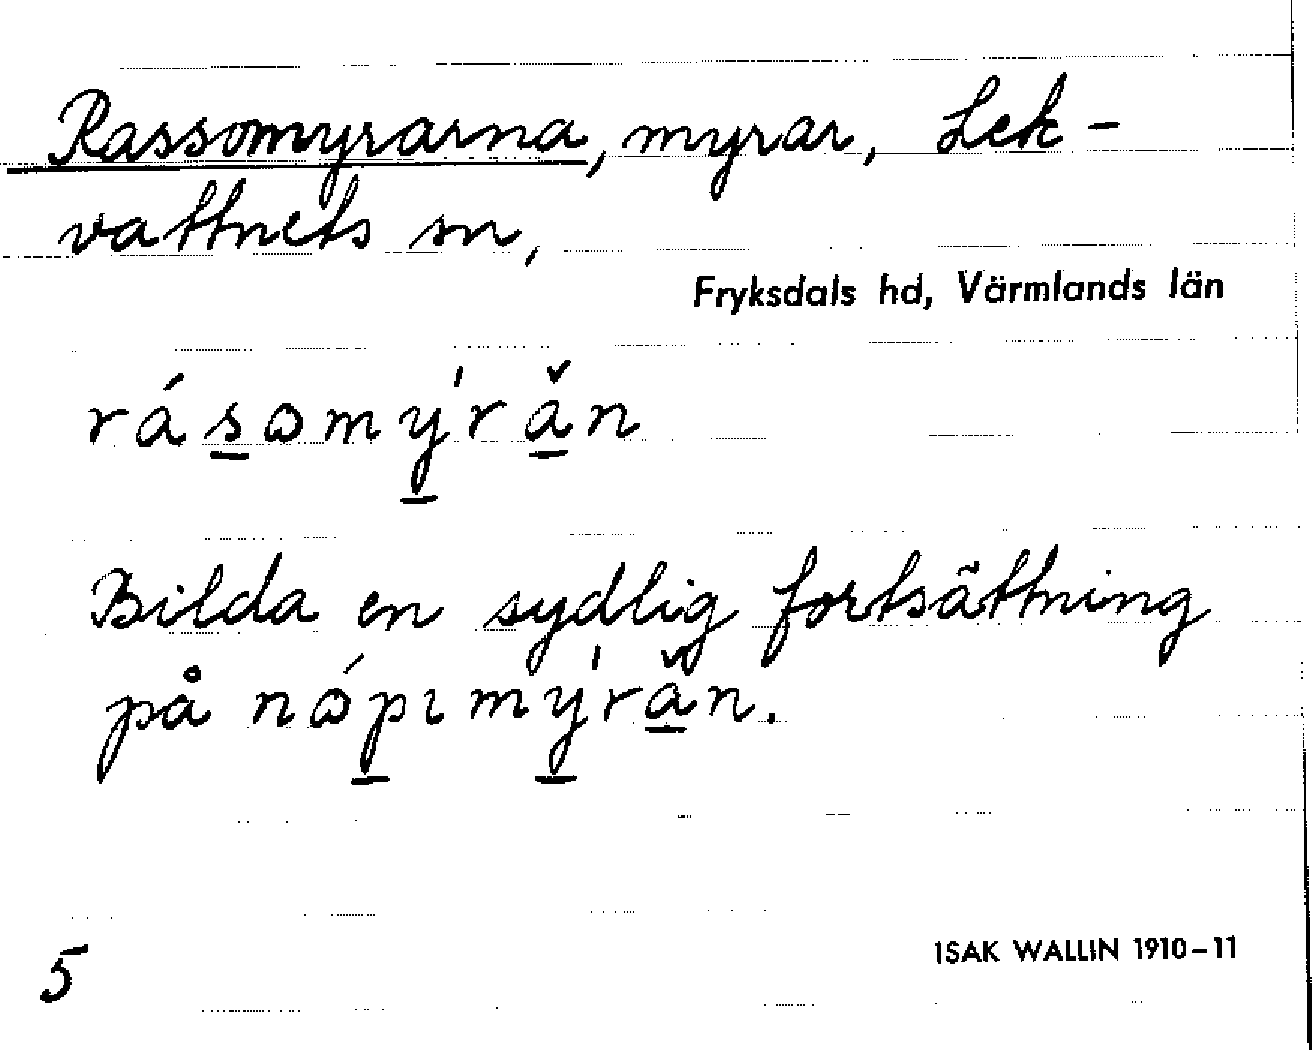 Rassomyrarna, myrar, Lek-
vattnets sn,
Fryksdals hd, Värmlands län
rásꙍmý̱rǎ̱n
Bilda en sydlig fortsättning
på nꙍ́p̱ımý̱rǎ̱n.
5
ISAK WALLIN 1910–11